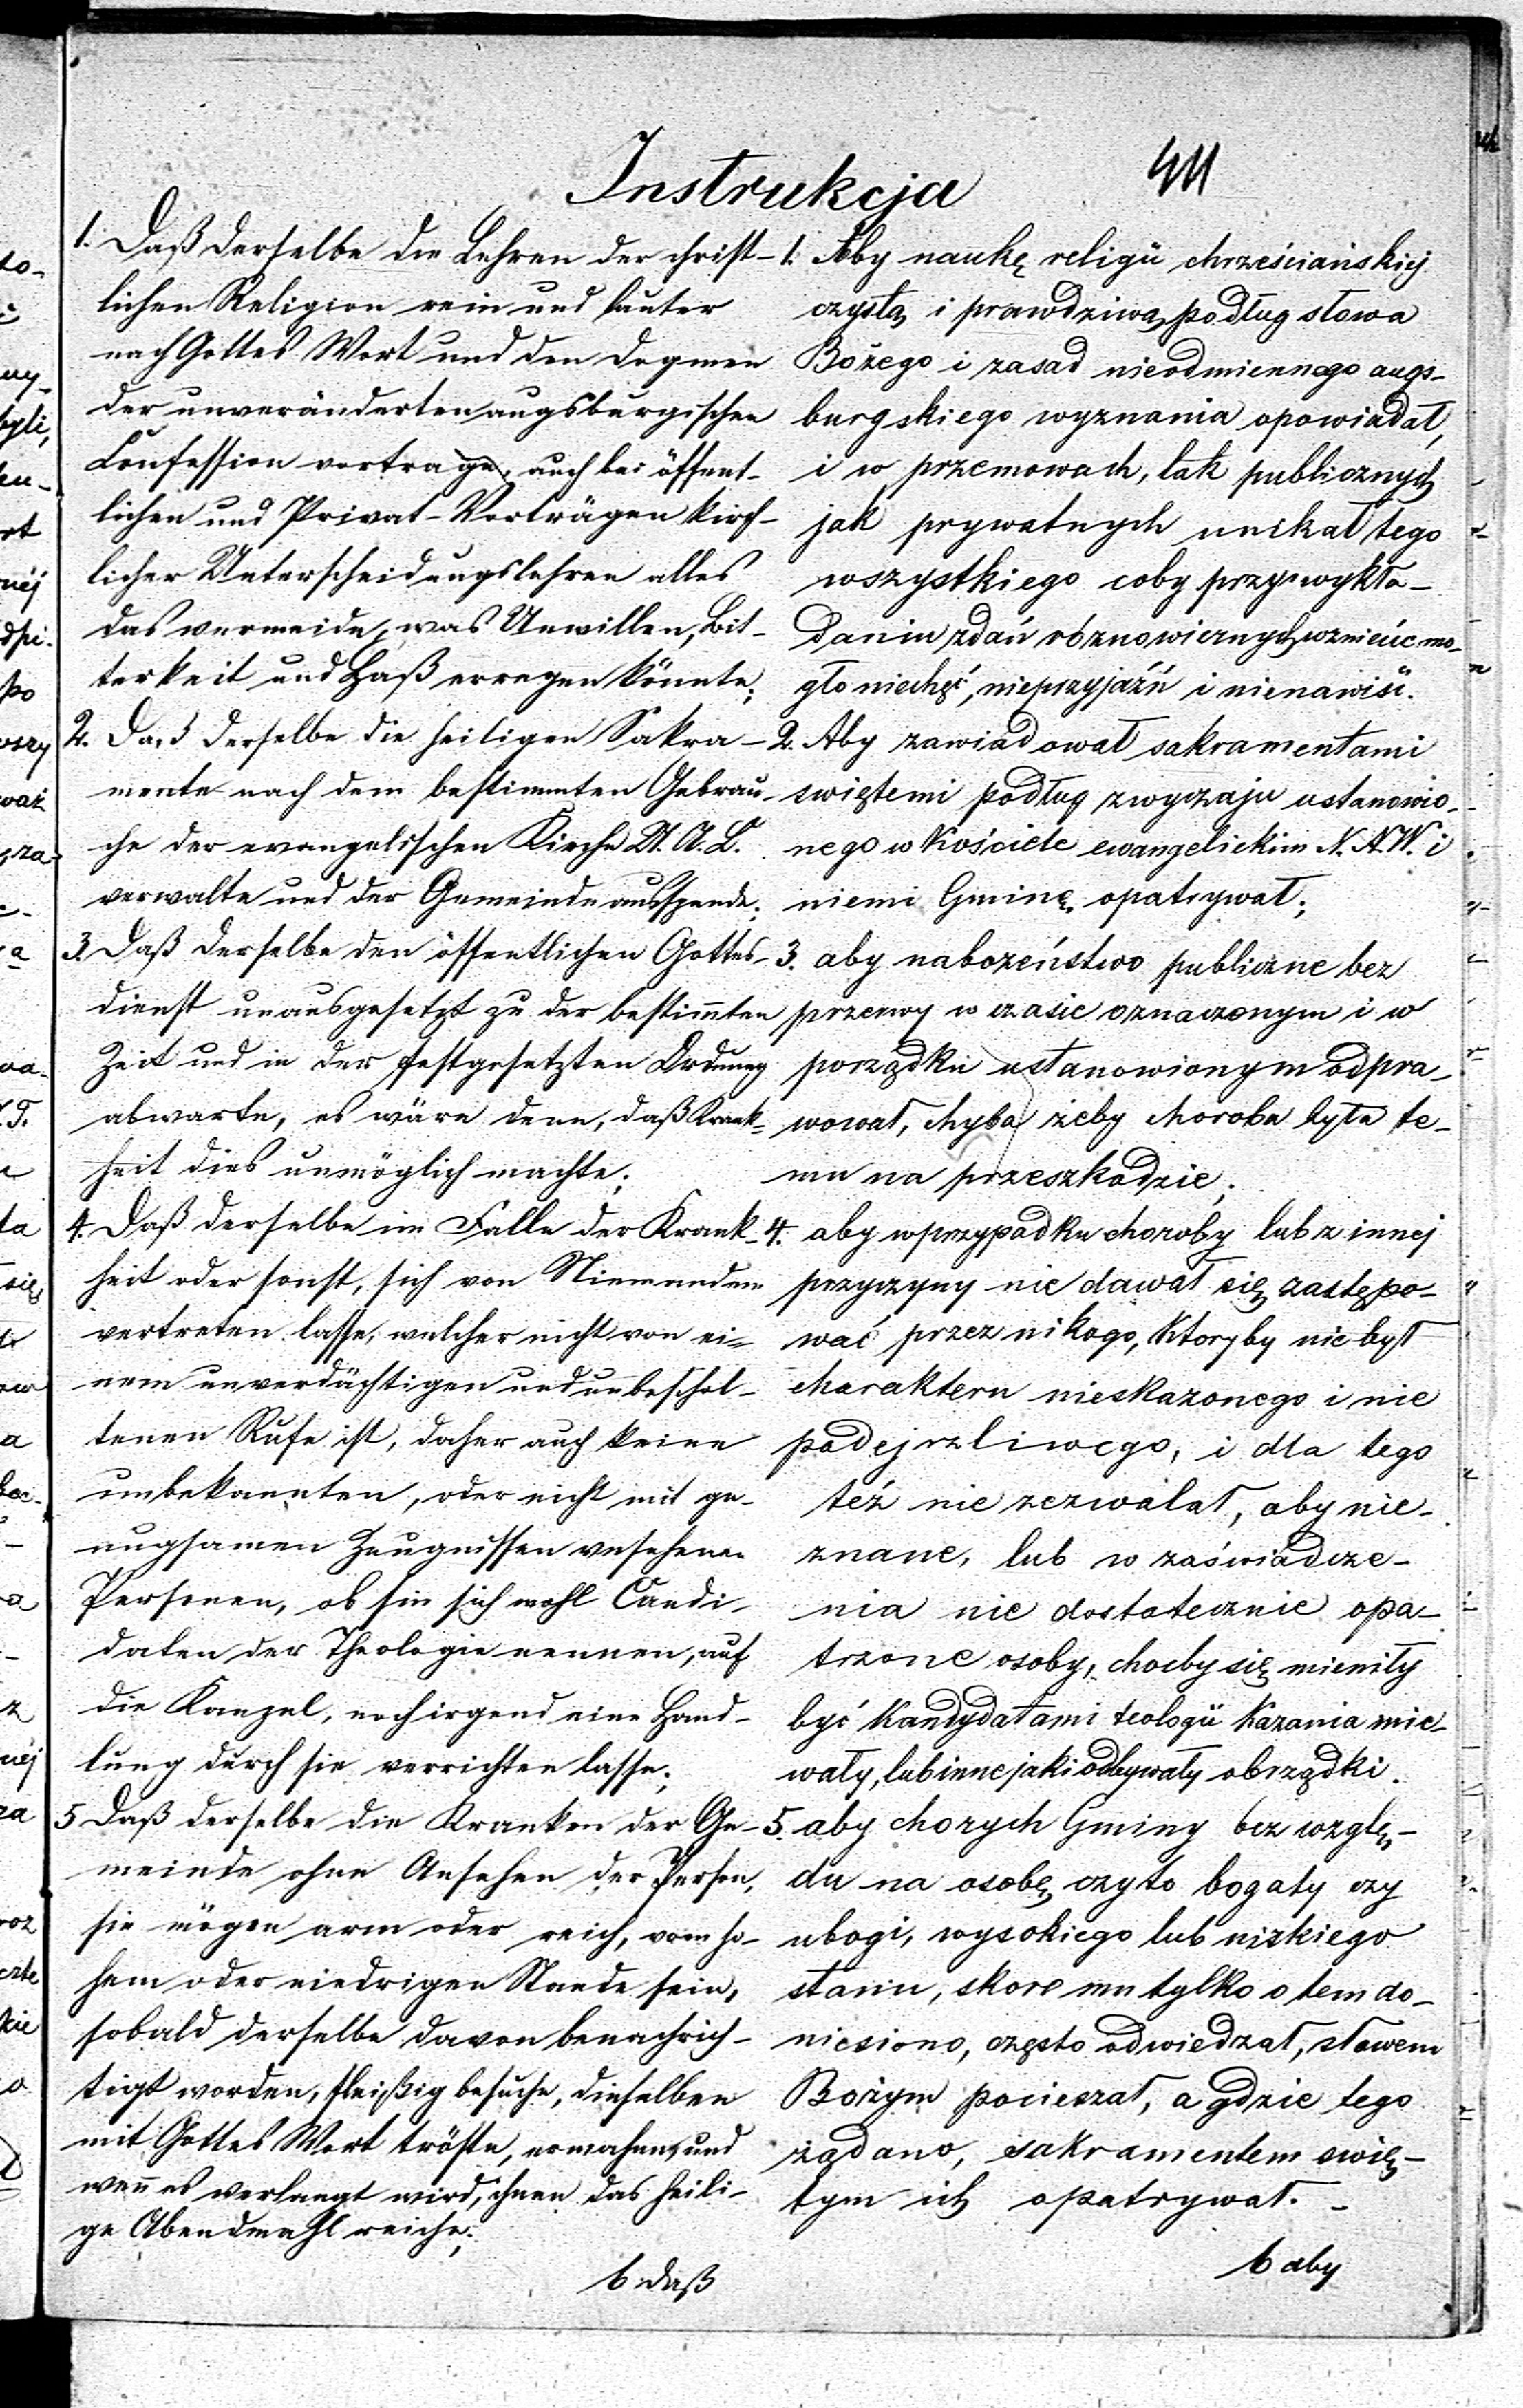 Instrukcja
411
1. Daß derselbe die Lehren der christ-
lichen Religion rein und lauter
nach Gottes Wort und den Dogmen
der unveränderten augsburgischen
Confession vortrage, auch bei öffent-
lichen und Privat-Vorträgen kirch-
licher Unterscheidungslehren alles
das vermeide, was Unwillen, Bit-
terkeit und Haß erregen könnte;
2. Daß derselbe die heiligen Sakra-
mente nach dem bestimmten Gebrau-
che der evangelischen Kirche U. A. C.
verwalte und der Gemeinde ausspende;
3. Daß derselbe den öffentlichen Gottes-
dienst unausgesetzt zu der bestimten
Zeit und in der festgesetzten Ordnung
abwarte, es wäre denn, daß Krank-
heit dies unmöglich machte;
4. Daß derselbe im Falle der Krank-
heit oder sonst, sich von Niemanden
vertreten lasse, welcher nicht von ei-
nem unverdächtigen und unbeschol-
tenen Rufe ist, daher auch keine
unbekannten, oder nicht mit ge-
nugsamen Zeugnissen versehenen
Personen, ob sie sich wohl Candi-
daten der Theologie nennen, auf
die Kanzel, noch irgend eine Hand-
lung durch sie verrichten lasse;
5 Daß derselbe die Kranken der Ge-
meinde ohne Ansehen der Person,
sie mögen arm oder reich, vom ho-
hem oder niedrigen Stande sein,
sobald derselbe davon benachrich-
tigt worden, fleißig besuche, dieselben
mit Gottes Wort tröste, ermahne, und
wen es verlangt wird, ihnen das heili-
ge Abendmahl reiche;
6 daß
1. Aby naukę religii chrześciańskiej
czystą i prawdziwą podług słowa
Bożego i zasad nieodmiennego augs-
burgskiego wyznania opowiadał,
i w przemowach, tak publicznych
jak prywatnych unikał tego
wszystkiego coby przy wykła-
daniu zdań różnowiernych wzniecić mo-
gło niechęć, nieprzyjaźń i nienawiść.
2. Aby zawiadował sakramentami
swiętemi podług zwyczaju ustanowio-
nego w Kościele ewangelickim N. A. W. i
niemi Gminę opatrywał;
3. aby nabożeństwo publiczne bez
przerwy w czasie oznaczonym i w
porządku ustanowionym odpra-
wował, chyba żeby choroba była te-
mu na przeszkodzie;
4. aby w przypadku choroby lub z innej
przyczyny nie dawał się zastępo-
wać przez nikogo, któryby nie był
charakteru nieskazonego i nie
podejrzliwego, i dla tego
też nie zezwalał, aby nie-
znane, lub w zaświadcze-
nia nie dostatecznie opa-
trzone osoby, choćby się mieniły
być Kandydatami teologii Kazania mie-
wały, lub inne jaki odbywały obrządki.
5. aby chorych Gminy bez wzglę-
du na osobę, czyto bogaty czy
ubogi, wysokiego lub nizkiego
stanu, skoro mu tylko o tem do-
niesiono, często odwiedzał, słowem
Bożym pocieszał, a gdzie tego
żądano, sakramentem świę-
tym ich opatrywał.
6 aby